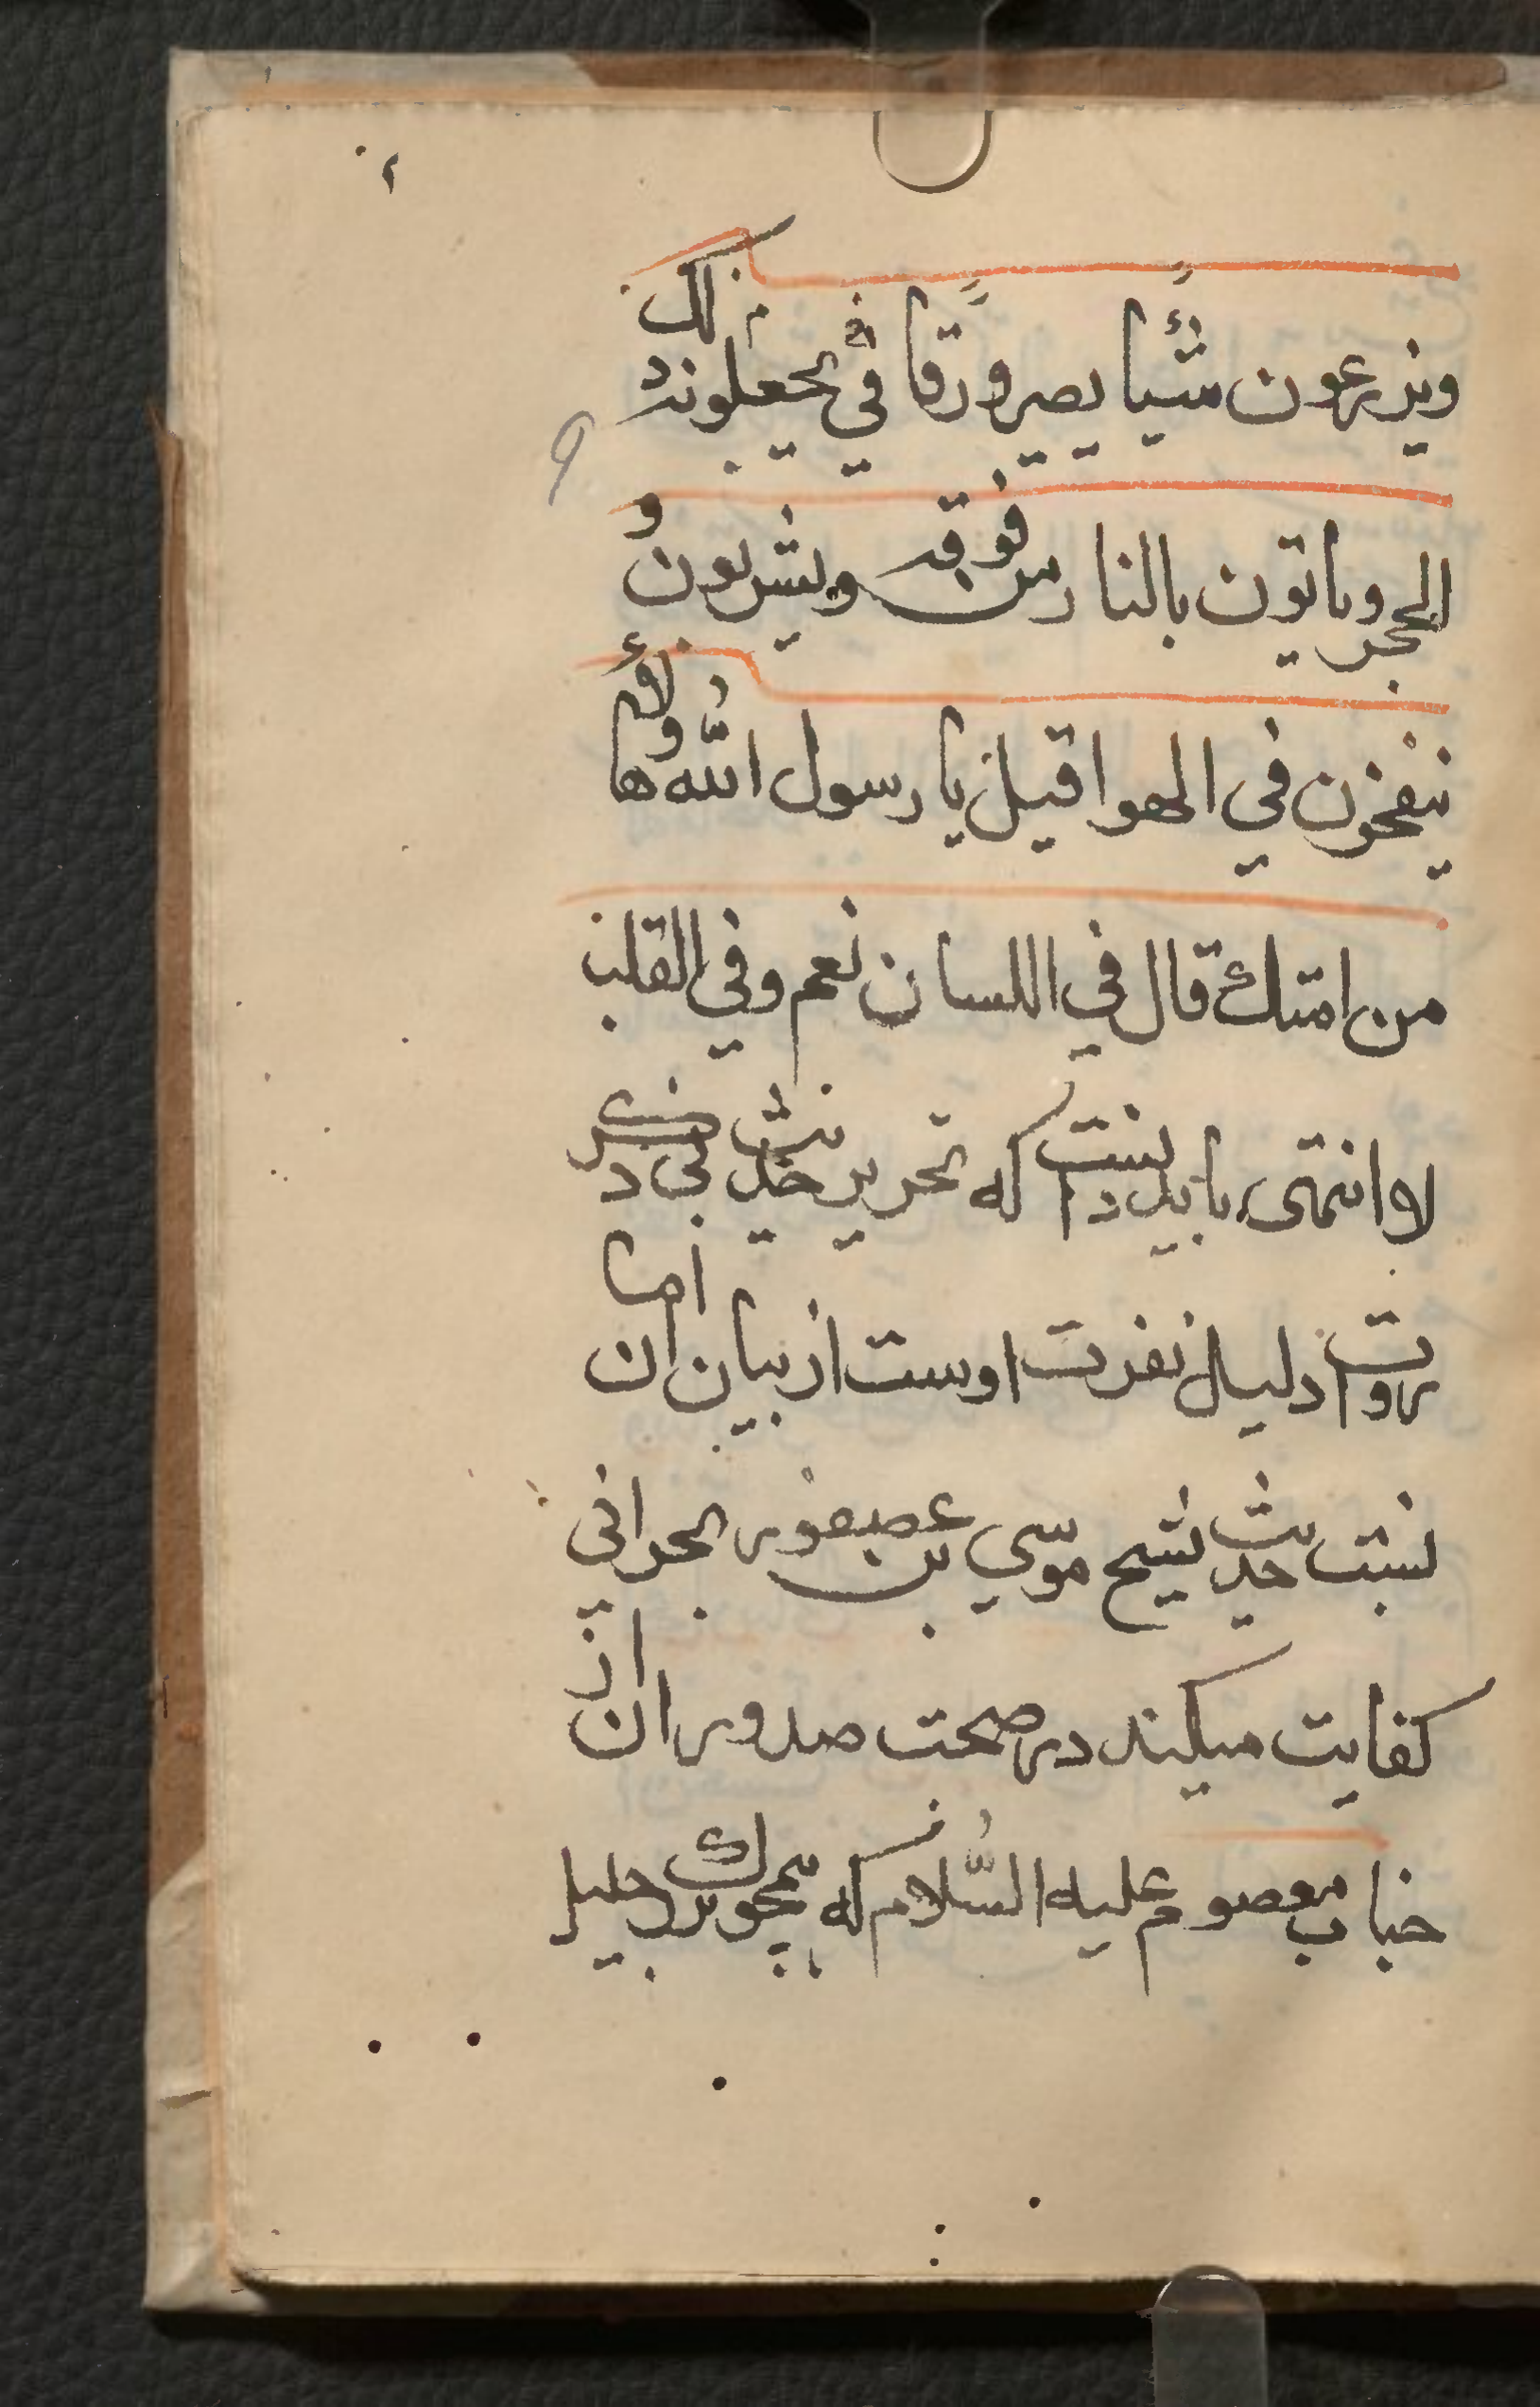 ويزرعون شيئًا يصير ورقًا فيجعلونه في ذلك
الحجر وياتون بالنار من فوقه ويشربون و
ينفخون في الهوا قيل يا رسول الله هاولاء
من امتك قال في اللسان نعم وفي القلب
لا انتهى بايد دانست که تحرير حديث بي ذكر
روات دليل نفرت اوست از بيان ان اما
نسبت حديث شيخ موسي بن عصيفور البحراني
كفايت ميكند در صحت صدور ان از
جناب معصوم عليه السّلام که همچو بزرك جليل